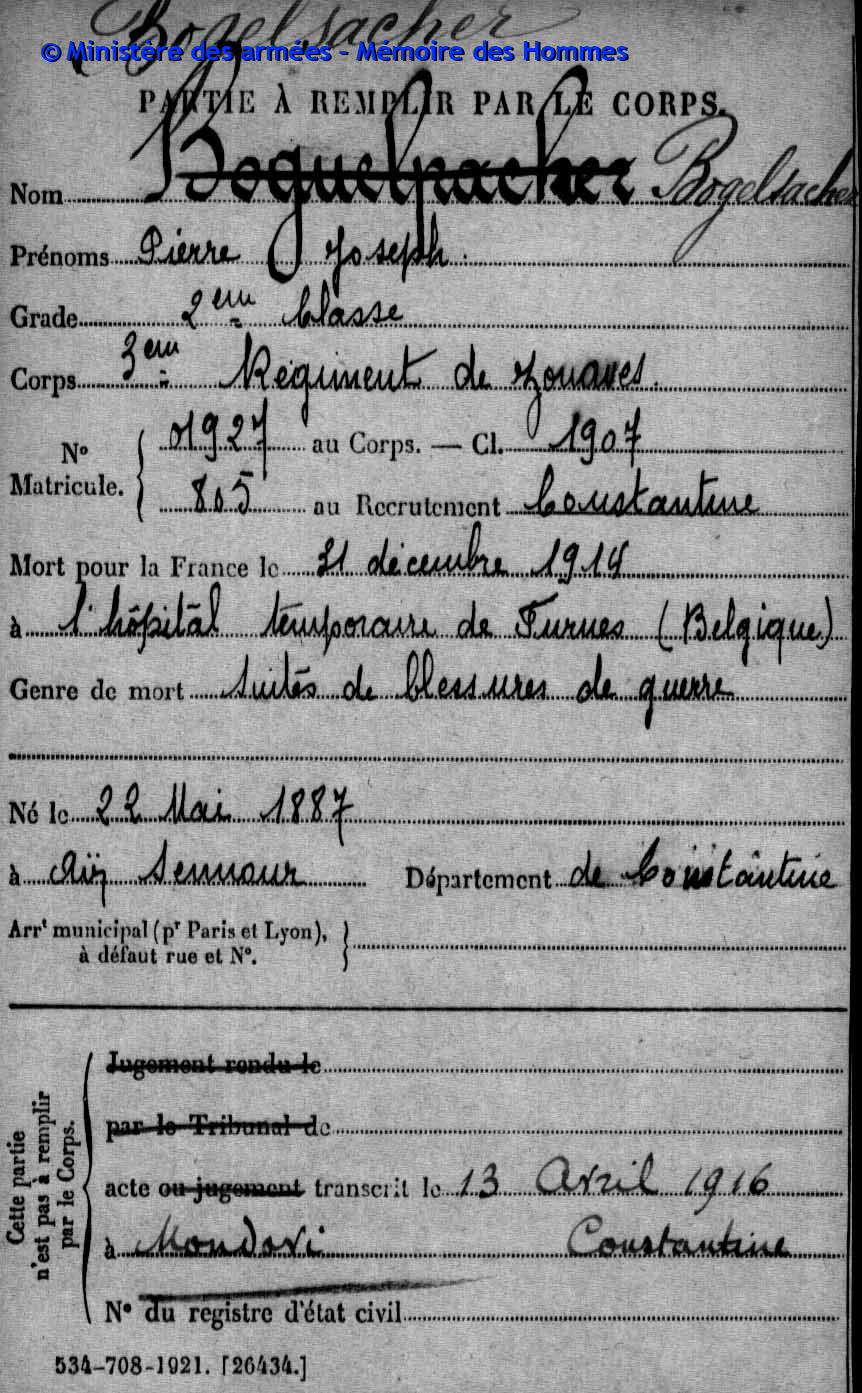 Bogelsacher
© Ministère des armées - Mémoire des Hommes
PARTIE À REMPLIR PAR LE CORPS.
Nom Boguelsacher Bogelsacher
Prénoms Pierre Joseph.
Grade 2ème Classe
Corps 3ème Régiment de Zouaves.
No Matricule. { 01927 au Corps. — Cl. 1907
805 au Recrutement Constantine
Mort pour la France le 31 décembre 1914
à l'hôpitâl temporaire de Furnes (Belgique)
Genre de mort Suites de blessures de guerre
Né le 22 Mai 1887
à Aïn Sennour Département de Constantine
Arrt municipal (pr Paris et Lyon), }
à défaut rue et N°.
Cette partie
n'est pas à remplir
par le Corps.
Jugement rendu le
par le Tribunal de
acte ou jugement transcrit le 13 Avril 1916
à Mondovi Constantine
N° du registre d'état civil
534-708-1921. [26434.]